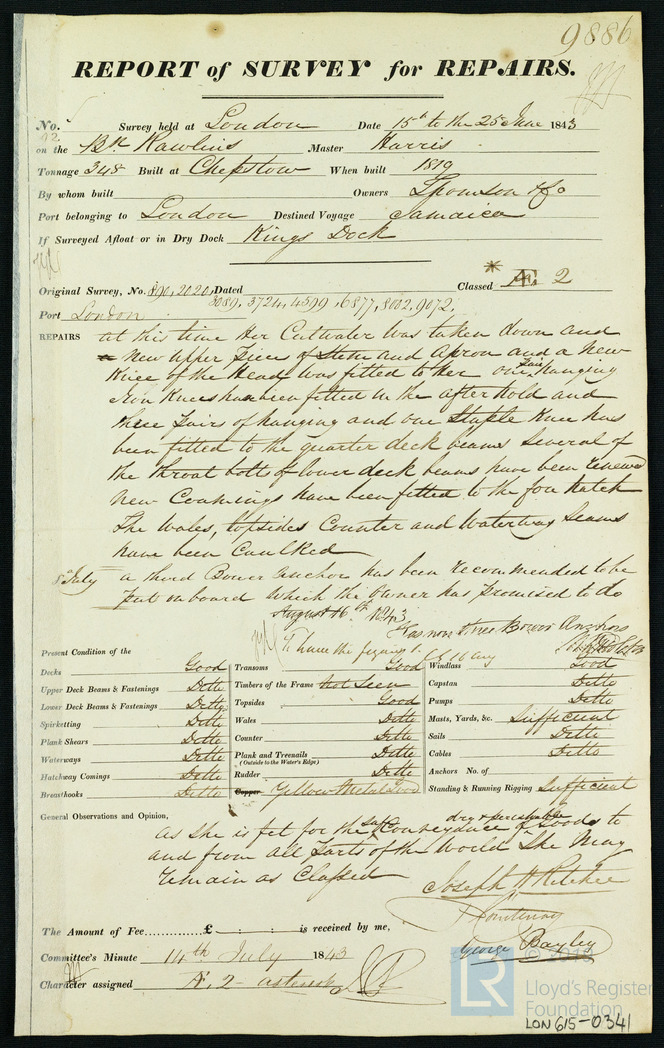 9886
REPORT of SURVEY for REPAIRS.
No. 92 Survey held at London Date 15th to the 25 June 1843
on the Bk Rawlins Master Harris
Tonnage 348 Built at Chepstow When built 1819
By whom built Owners Thomson & Co
Port belonging to London Destined Voyage Jamaica
If Surveyed Afloat or in Dry Dock Kings Dock
Original Survey, No. 890, 2020, Dated Classed * Æ 2
3089, 3724, 4599, 6877, 8002, 9072,
Port London
REPAIRS at this time Her Cutwater was taken down and
a New upper piece of Stem and Apron and a New
Knee of the Head was fitted to her one Pair hanging
Iron Knees has been fitted in the after hold and
three pairs of hanging and one Staple Knee has
been fitted to the quarter deck beams Several of
the throat bolts of lower deck beams have been renewed
New Coamings have been fitted to the fore hatch
The Wales, topsides Counter and Waterway Seams
have been Caulked
8 July a third Bower Anchor has been recommended to be
put on board which the owner has promised to do
August 16th 1843
Has now three Bower Anchors
16 Aug
Present Condition of the
Decks Good
Upper Deck Beams & Fastenings Ditto
Lower Deck Beams & Fastenings Ditto
Spirketting Ditto
Plank Shears Ditto
Waterways Ditto
Hatchway Comings Ditto
Breasthooks Ditto
Transoms Good
Timbers of the Frame Not Seen
Topsides Good
Wales Ditto
Counter Ditto
Plank and Treenails Ditto
(Outside to the Water's Edge)
Rudder Ditto
Copper Yellow Metal Good
Windlass Good
Capstan Ditto
Pumps Ditto
Masts, Yards, &c. Sufficient
Sails Ditto
Cables Ditto
Anchors No. of
Standing & Running Rigging Sufficient
General Observations and Opinion,
As She is fit for the Safe Conveyance of dry & perishable Goods to
and from all parts of the World She May
remain as Classed
Joseph H Ritchie
Courtenay
George Bayley
The Amount of Fee............£ : : is received by me,
Committee's Minute 14th July 1843
Character assigned Æ 2 - asterisk
© 2019
LR
Lloyd's Register
Foundation
LON 615-0341